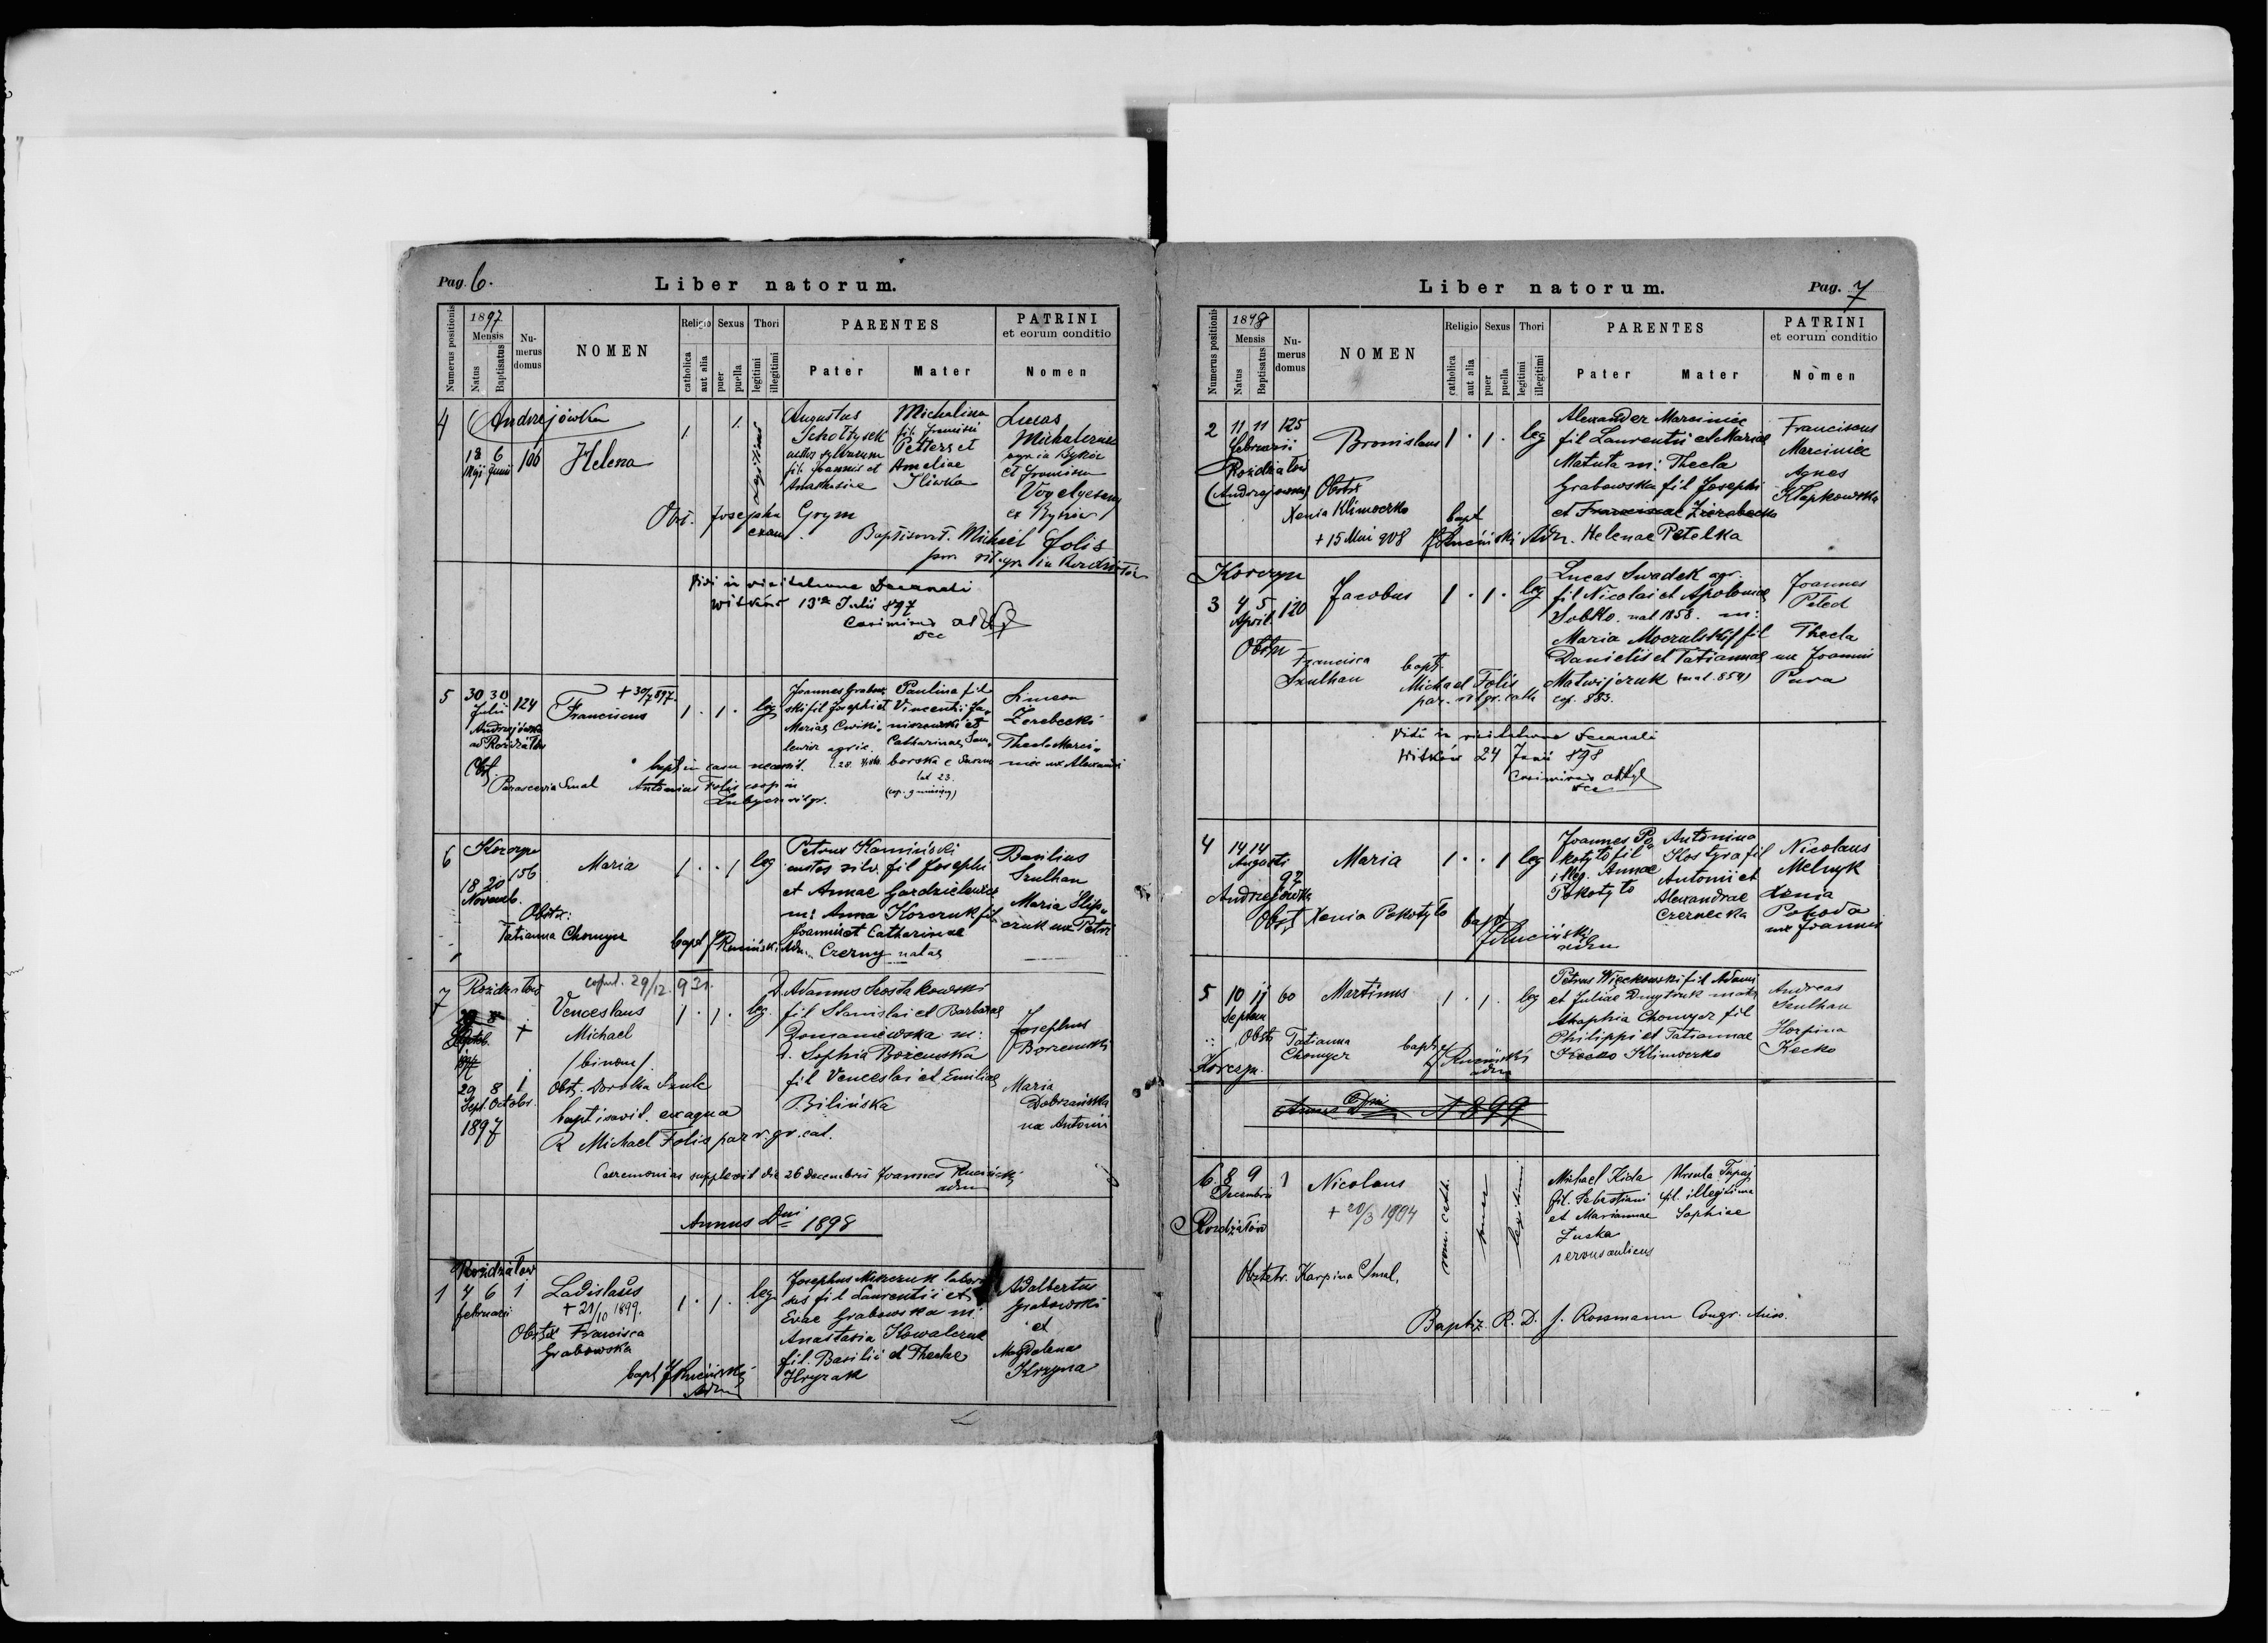 Pag. 6.
Liber natorum.
Numerus positionis
1897
Mensis
Natus
Baptisatus
Nu-
merus
domus
NOMEN
Religio
catholica
aut alia
Sexus
puer
puella
Thori
legitimi
illegitimi
PARENTES
Pater
Mater
PATRINI
et eorum conditio
Nomen
4
Andrzejówka
18 6 106
Maji Junii
Helena
1.
1.
Legitimi
Augustus
Schołtysek
sylvarum
fil. Joannis et
Anastasiae
Michalina
fil. Francisci
Petters et
Ameliae
Sliwka
Lucas
Michalczuk
et Francisca
ex
Obst. Josepha Grym
exam.
Baptisavit. Michael Folis
par. rit. gr. in Rozdziałów
Vidi in visitatione Decanali
Witków 13 Julii 897
Casimirus
Dec
5
30 30 124
Julii
Andrzejówka
ad Rozdziałów
+ 30/7 897.
Franciscus
1 . 1 . leg
Joannes Grabow-
ski fil Josephi et
Mariae Cwiki-
lewicz agric.
Paulina fil
Vincentii
et
Catharinae
borska e
Simeon
Zerebecki
Thecla Marci-
niec ux Alexandri
Obst.
Parascevia Smal
bapt in casu necessit.
Antonius Folis coop in
6
Korczyn
18 20 156
Novemb.
Maria
1 . . 1 leg
Petrus Kamiński
custos silv. fil Josephi
et Annae Gardzielewicz
m: Anna Korczuk fil
Joannis et Catharinae
Czerny natae
Basilius
Szulhan
Maria Slip-
czuk ux Petri
Obstr:
Tatianna Chomyer
bapt J Ruciński Adm.
7
Rozdziałów
copul. 29/12. 931.
+
29 8
Septob.
1897
Venceslaus
Michael
/binom/
1 . 1 . leg.
D. Adamus Szostakowski
fil Stanislai et Barbarae
Domaniewska m:
D. Sophia Borzemska
fil Venceslai et Emiliae
Bilińska
Josephus
Borzemski
Maria
Dobrzańska
ux Antonii
29 8 1
Sept. Octobr.
1897
Obst. Dorothea Szulc
baptisavit. ex aqua
R Michael Folis par r. gr. cat.
Ceremonias supplevit die 26 Decembris Joannes Ruciński
adm
Annus Dni 1898
Rozdziałów
1 4 6 1
februarii
Ladislaus
+ 21/10 1899.
1 . 1 . leg
Josephus Miszczuk
fil Laurentii et
Evae Grabowska m:
Anastasia Kowalczuk
fil. Basilii et Theclae
Hryzak
Adalbertus
Grabowski
et
Magdalena
Kryma
Obstet Francisca
Grabowska
bapt J Ruciński
Adm
Liber natorum.
Pag. 7
Numerus positionis
1898
Mensis
Natus
Baptisatus
Nu-
merus
domus
NOMEN
Religio
catholica
aut alia
Sexus
puer
puella
Thori
legitimi
illegitimi
PARENTES
Pater
Mater
PATRINI
et eorum conditio
Nomen
2
11 11 125
Februarii
Rozdziałów
(Andrzejowka)
Bronislaus
1 . 1 . leg
Alexander Marciniec
fil Laurentii et Mariae
Matuta m: Thecla
Grabowska fil Josephi
et Franciscae Zierebecka
Helenae Petelka
Franciscus
Marciniec
Agnes
Kłapkowska
Obstr
Xenia Klimoczko
+ 15 Mai 908
bapt
J Ruciński Adm.
Korczyn
3 4 5 120
April.
Jacobus
1 . 1 . leg
Lucas Swadek agr.
fil Nicolai et Apoloniae
Sobko nat 1858. m:
Maria Moczulski fil
Danielis et Tatiannae
Matwijczuk (nat. 859)
cop. 883.
Joannes
Peled
Thecla
ux Joannis
Puva
Obstr
Francisca
Szulhan
bapt.
Michael Folis
par. rit gr. cath
Vidi in visitatione Decanali
Witków 24 Junii 898
Casimirus
Dec
4
14 14
Augusti
97
Andrzejówka
Maria
1 . . 1 leg
Joannes Po
kotyło fil
illeg. Annae
Pokotyło
Antonina
Kostyra fil
Antonii et
Alexandrae
Czernecka
Nicolaus
Melnyk
Xenia
Pohoda
ux Joannis
Obst Xenia Pokotyło
bapt
J Ruciński
adm
5 10 11 60
Septem
Martinus
1 . 1 . leg
Petrus Więckowski fil Adami
et Juliae Dmytruk mat:
Ahaphia Chomyer fil
Philippi et Tatiannae
Kecko Klimoczko
Andreas
Szulhan
Horpina
Kecko
Obst Tatianna
Chomyer
bapt
J Ruciński
adm
Korczyn.
Annus Dni 1899
6. 8 9 1
Decembris
Rozdziałów
Nicolaus
+ 20/3 1904
rom. cath.
puer
legitimi
Michael Kida
fil. Sebastiani
et Mariannae
Luska
servus aulicus
Ursula Tupaj
fil. illegitima
Sophiae
Obstetr. Karpina Smal,
Baptiz. R. D. J. Rossmann Congr. Miss.